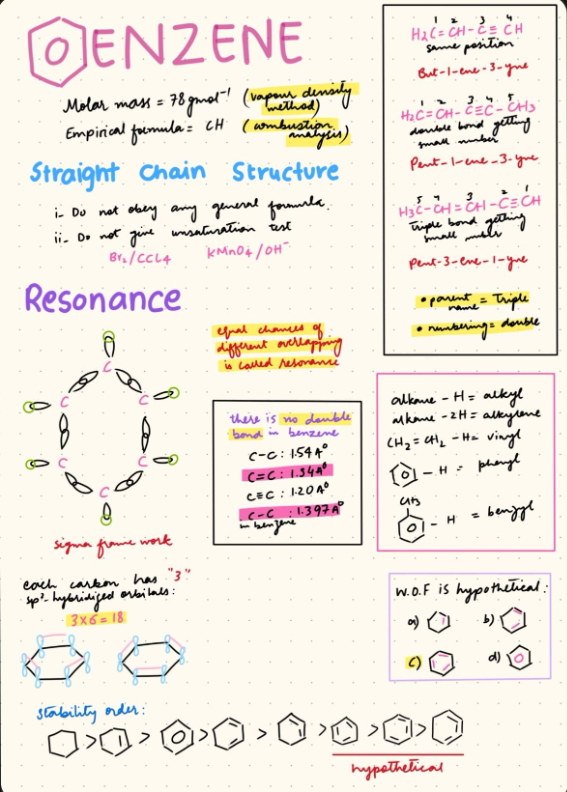 BENZENE
Molar mass = 78 gmol⁻¹ (vapour density method)
Empirical formula = CH (combustion analysis)
Straight Chain Structure
i- Do not obey any general formula.
ii- Do not give unsaturation test
Br₂/CCl₄ KMnO₄/OH⁻
Resonance
equal chances of
different overlapping
is called resonance
C
C C
C C
C
sigma frame work
there is no double
bond in benzene
C-C : 1.54 A°
C=C : 1.34 A°
C≡C : 1.20 A°
C-C : 1.397 A°
in benzene
each carbon has "3"
sp²-hybridized orbitals:
3x6 = 18
stability order:
> > > > > > >
hypothetical
1 2 3 4
H₂C = CH - C ≡ CH
same position
But-1-ene-3-yne
1 2 3 4 5
H₂C = CH - C ≡ C - CH₃
double bond getting
small number
Pent-1-ene-3-yne
5 4 3 2 1
H₃C - CH = CH - C ≡ CH
triple bond getting
small number
Pent-3-ene-1-yne
• parent name = Triple
• numbering = double
alkane - H = alkyl
alkane - 2H = alkylene
CH₂ = CH₂ - H = vinyl
- H = phenyl
CH₃
- H = benzyl
W.O.F is hypothetical:
a) b)
c) d)